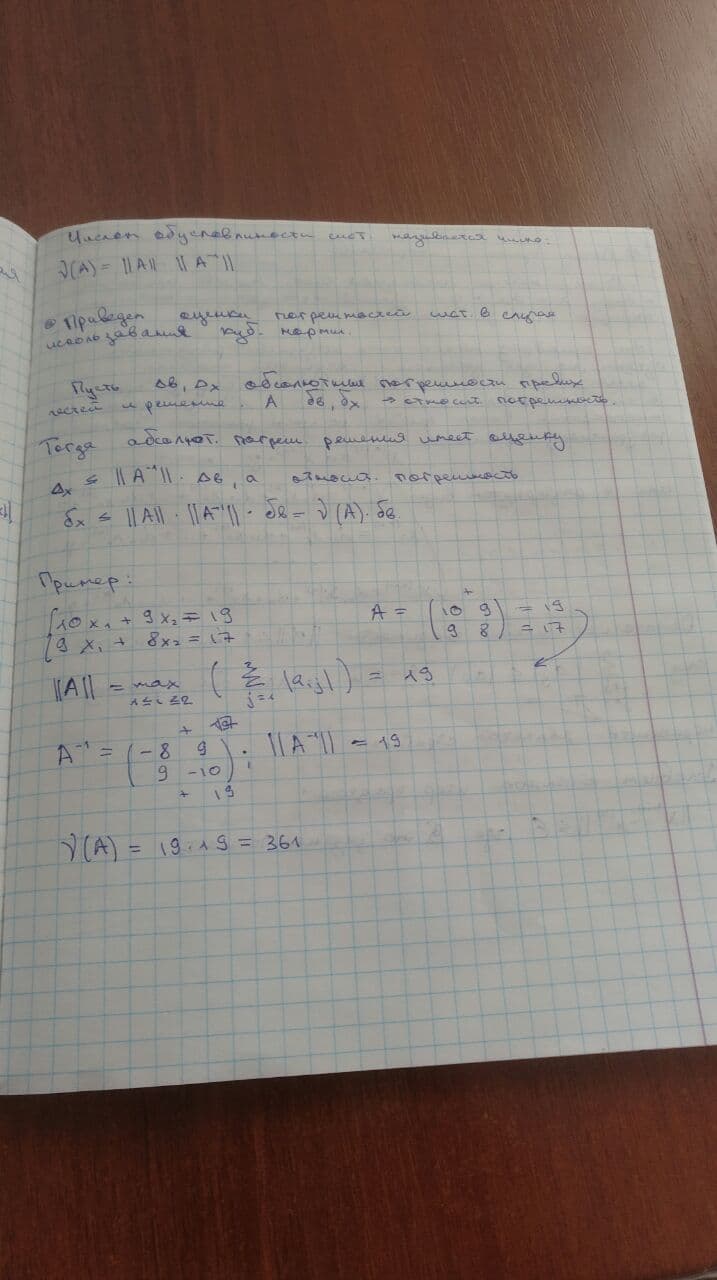 Числом обусловлиности сист. называется число:
ν(A) = ||A|| ||A⁻¹||
Приведем оценки погрешностей сист. в случае
использования куб. нормы.
Пусть Δв, Δx абсолютные погрешности правых
частей и решение. А δв, δx → относит. погрешность.
Тогда абсолют. погреш. решения имеет оценку
Δx ≤ ||A⁻¹|| · Δв, а относит. погрешность
δx ≤ ||A|| · ||A⁻¹|| · δв = ν(A) · δв.
Пример:
{10x₁ + 9x₂ = 19
{9x₁ + 8x₂ = 17
A = (10 + 9) = 19
(9 8) = 17
||A|| = max 1≤i≤2 (Σ j=1 |aᵢj|) = 19
A⁻¹ = (-8 + 9
9 -10) ; ||A⁻¹|| = 19
+ 19
ν(A) = 19 · 19 = 361